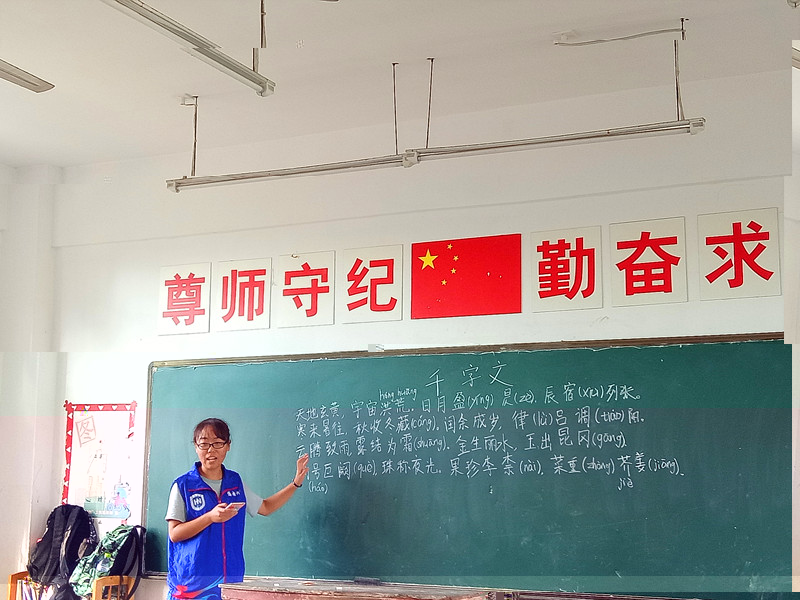 尊师守纪 勤奋求
千字文
hóng huāng
天地玄黄,宇宙洪荒.日月盈(yíng)昃(zè),辰宿(xiù)列张.
寒来暑往,秋收冬藏(cáng).闰余成岁,律(lǜ)吕调(tiáo)阳.
云腾致雨,露结为霜(shuāng).金生丽水,玉出昆冈(gāng).
号巨阙(què),珠称夜光.果珍李柰(nài),菜重(zhòng)芥姜(jiāng).
(hào)
jiè
图